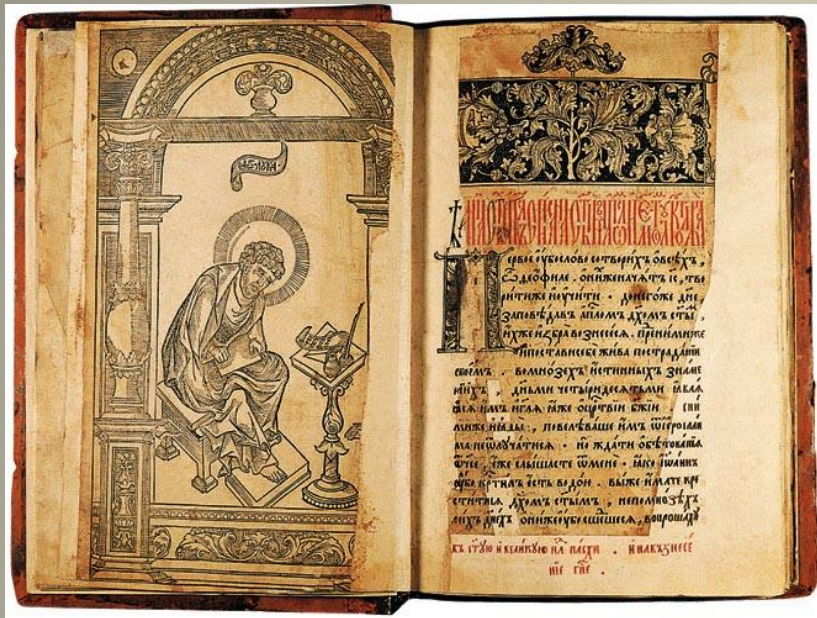 Первое оубо слово сотворихъ ѡ всѣхъ,
ѽ Ѳеофиле. ѡ нихже начатъ іс, тво
рити же и оучити. до негоже дне
заповѣдавъ апломъ дхомъ стымъ,
ихже избра вознесеся. пред ними же
и постави себе жива по страдании
своемъ. во мнозѣхъ истинныхъ знаме
ниихъ, дньми четыридесятьми ꙗвлꙗ
ꙗсѧ имъ и глꙗ ꙗже о црствіи бжіи. с ни
ми же и ꙗды, повелѣваше имъ ѿ іеросали
ма не ѿлучатисѧ. но ждати обѣтованіꙗ
ѿчее, еже слышасте ѿ мене. ꙗко іѡаннъ
оубо крстилъ есть водою. вы же имате кре
ститисѧ дхомъ стымъ, не по мнозѣхъ
сихъ днехъ они же оубо сшедшесѧ, вопрошахꙋ
въ стꙋю и великꙋю нлю пасхи. и на възнесе
ніе гне.